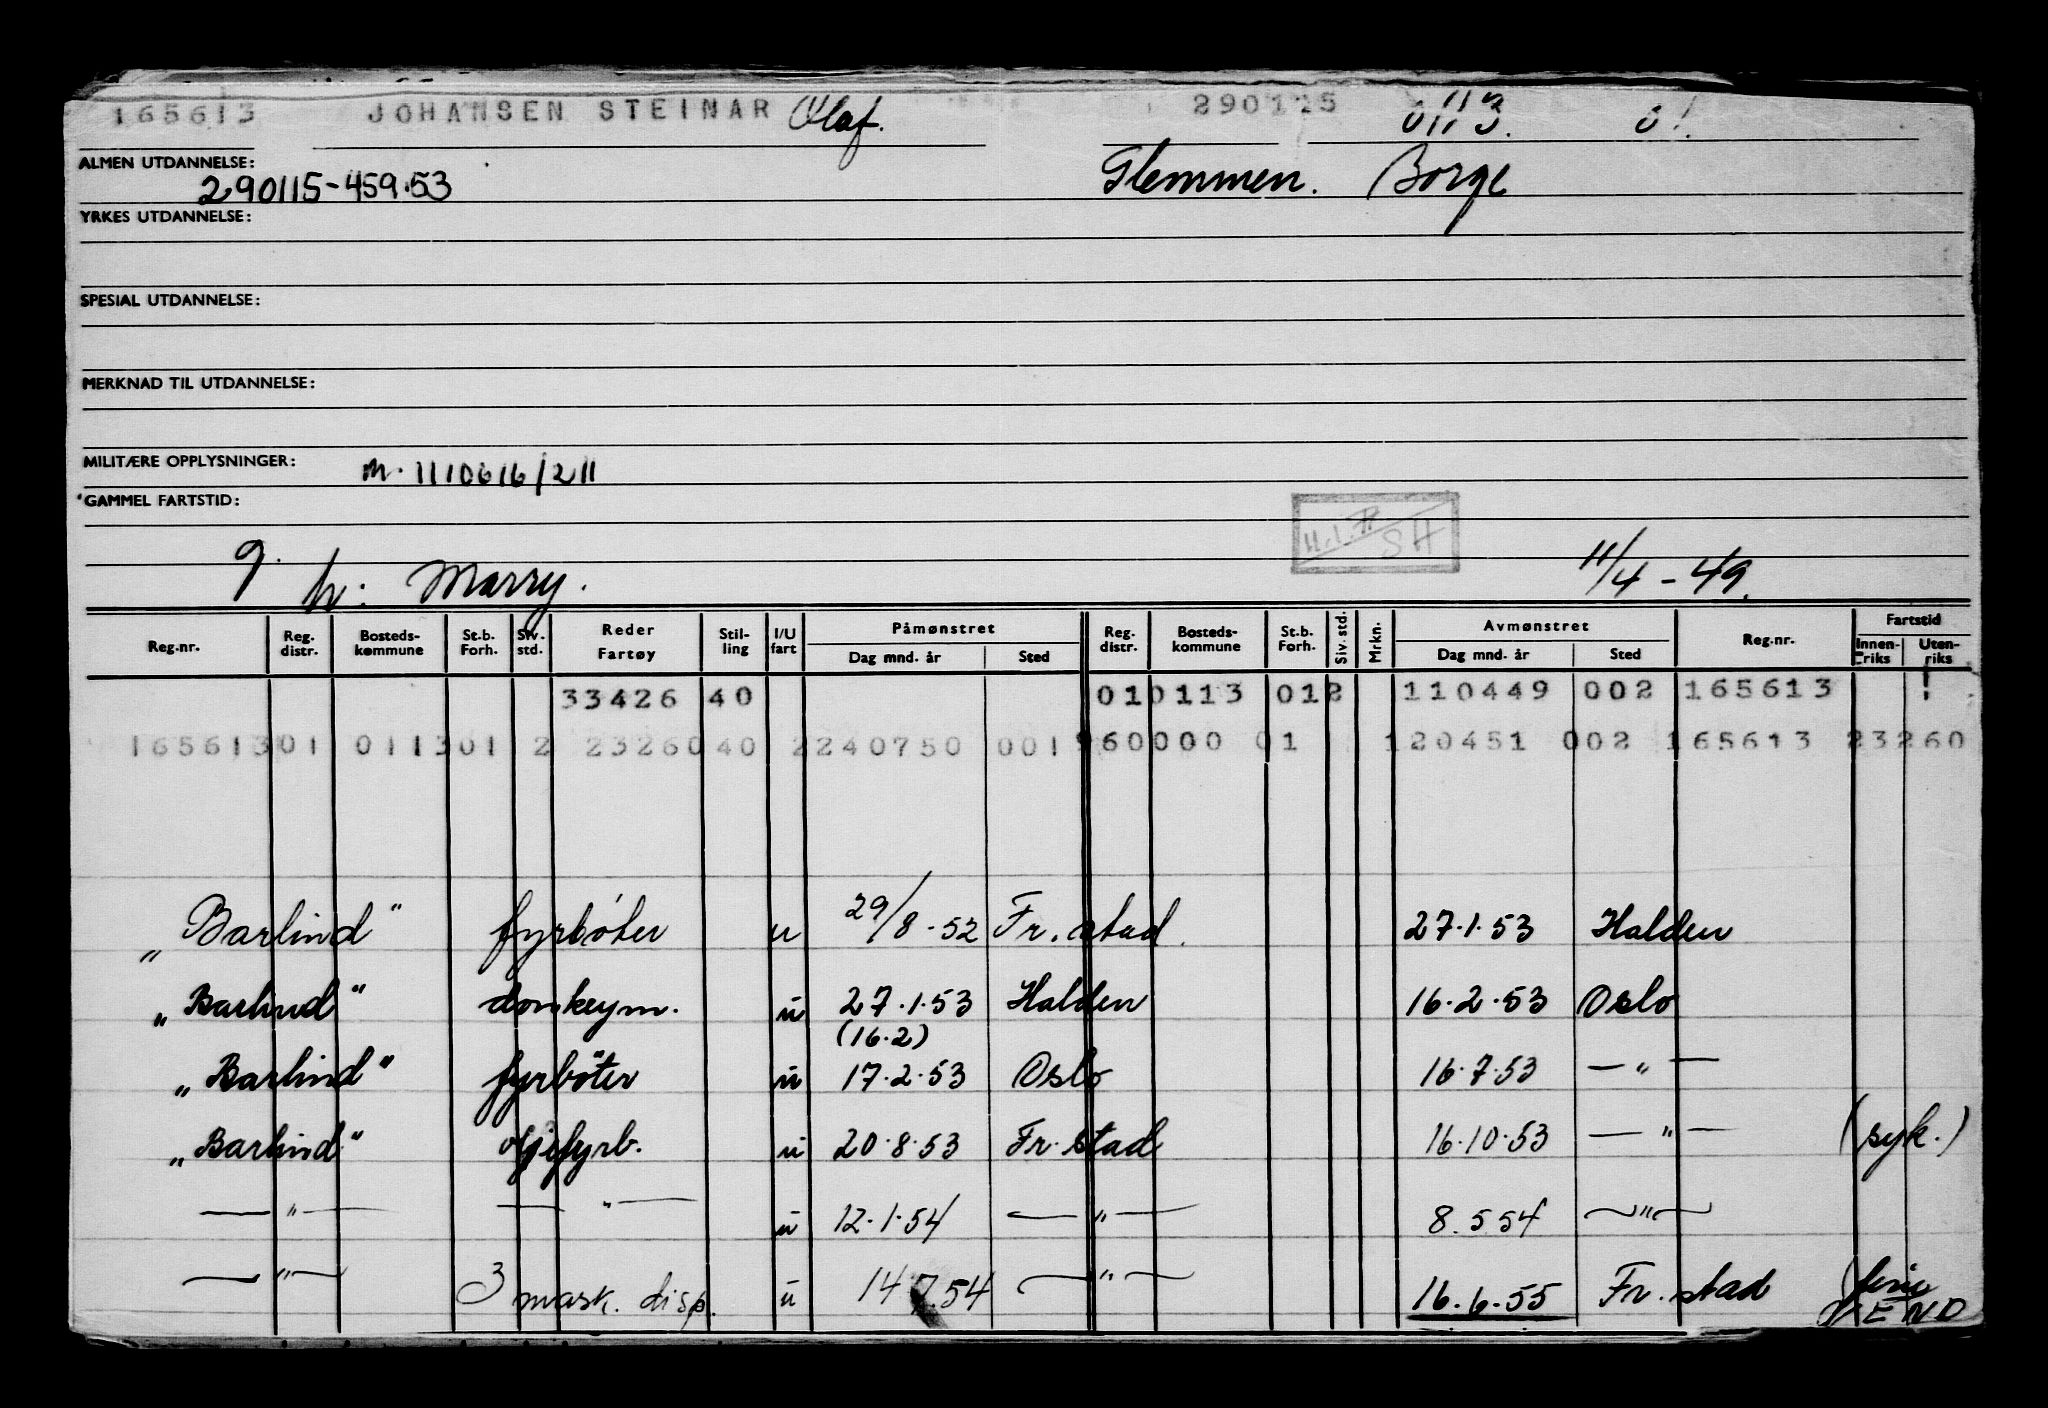 165613 JOHANSEN STEINAR Olaf. 290115 0113. 01.
ALMEN UTDANNELSE: Glemmen. Borge
290115-459.53
YRKES UTDANNELSE:
SPESIAL UTDANNELSE:
MERKNAD TIL UTDANNELSE:
MILITÆRE OPPLYSNINGER: M. 1110616/211
GAMMEL FARTSTID:
SH
g. h: Marry. 11/4-49.
Reg.nr. Reg. distr. Bosteds-kommune St.b. Forh. Siv. std. Reder Fartøy Stil-ling I/U fart Påmønstret Dag mnd. år Sted Reg. distr. Bosteds-kommune St.b. Forh. Siv. std. Mrkn. Avmønstret Dag mnd. år Sted Reg.nr. Fartstid Innen-riks Uten-riks
33426 40 010113 012 110449 002 165613 !
165613 01 011301 2 23260 40 2 240750 001 960000 01 120451 002 165613 23260
„Barlind" fyrbøter u 29/8-52 Fr.stad. 27.1.53 Halden
„Barlind" donkeym. u 27.1.53 Halden 16.2.53 Oslo
(16.2)
„Barlind" fyrbøter u 17.2.53 Oslo 16.7.53 — " —
„Barlind" oljefyrb. u 20.8.53 Fr.stad 16.10.53 — " — (syk.)
— " — — " — u 12.1.54 — " — 8.5.54 — " —
— " — 3 mask. disp. u 14.7.54 — " — 16.6.55 Fr.stad